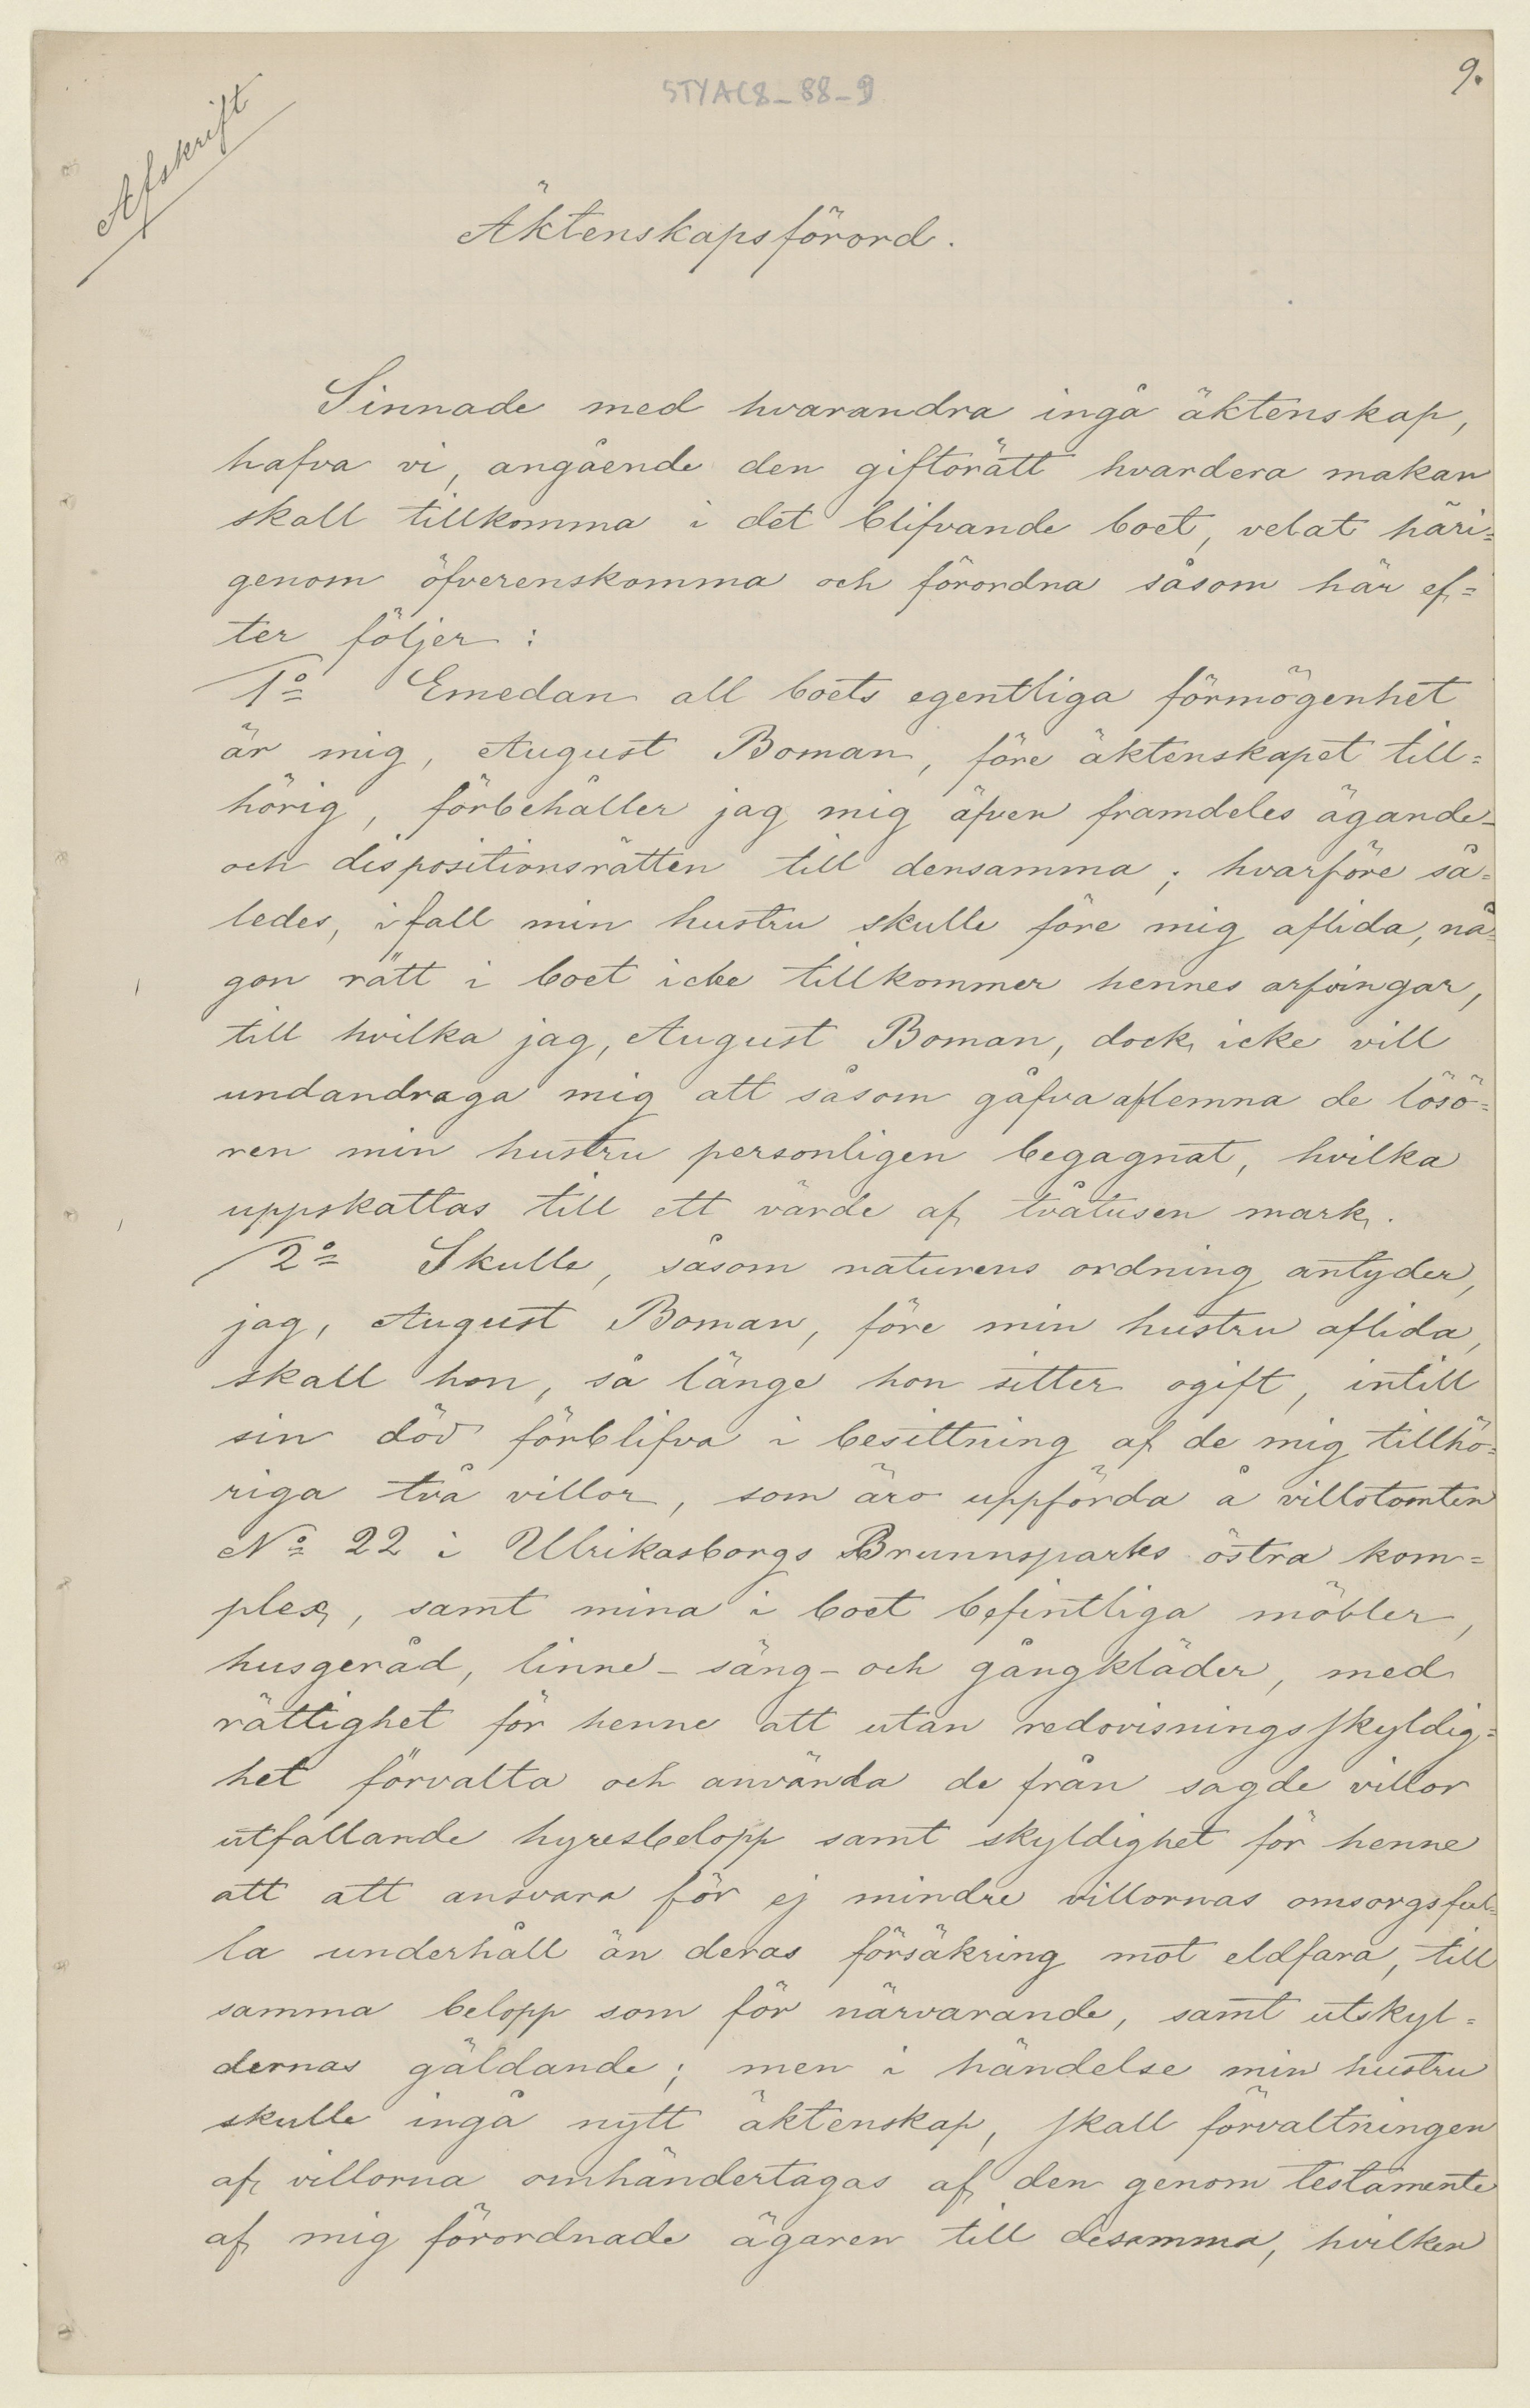 9.
STYAC8_88_9
Afskrift
Äktenskapsförord.
Sinnade med hvarandra ingå äktenskap,
hafva vi, angående den giftorätt hvardera makan
skall tillkomma i det blifvande boet, velat häri=
genom öfverenskomma och förordna såsom här ef=
ter följer:
1º Emedan all boets egentliga förmögenhet
är mig, August Boman, före äktenskapet till=
hörig, förbehåller jag mig äfven framdeles ägande-
och dispositionsrätten till densamma; hvarföre så=
ledes, i fall min hustru skulle före mig aflida, nå=
gon rätt i boet icke tillkommer hennes arfvingar,
till hvilka jag, August Boman, dock icke vill
undandraga mig att såsom gåfva aflemna de lösö=
ren min hustru personligen begagnat, hvilka
uppskattas till ett värde af tvåtusen mark.
2º Skulle, såsom naturens ordning antyder,
jag, August Boman, före min hustru aflida,
skall hon, så länge hon sitter ogift, intill
sin död förblifva i besittning af de mig tillhö=
riga två villor, som äro uppförda å villotomten
Nº 22 i Ulrikasborgs Brunnsparks östra kom=
plex, samt mina i boet befintliga möbler,
husgeråd, linne- säng- och gångkläder, med
rättighet för henne att utan redovisningsskyldig=
het förvalta och använda de från sagde villor
utfallande hyresbelopp samt skyldighet för henne
att att ansvara för ej mindre villornas omsorgsful=
la underhåll än deras försäkring mot eldfara, till
samma belopp som för närvarande, samt utskyl=
dernas gäldande; men i händelse min hustru
skulle ingå nytt äktenskap, skall förvaltningen
af villorna omhändertagas af den genom testamente
af mig förordnade ägaren till desamma, hvilken